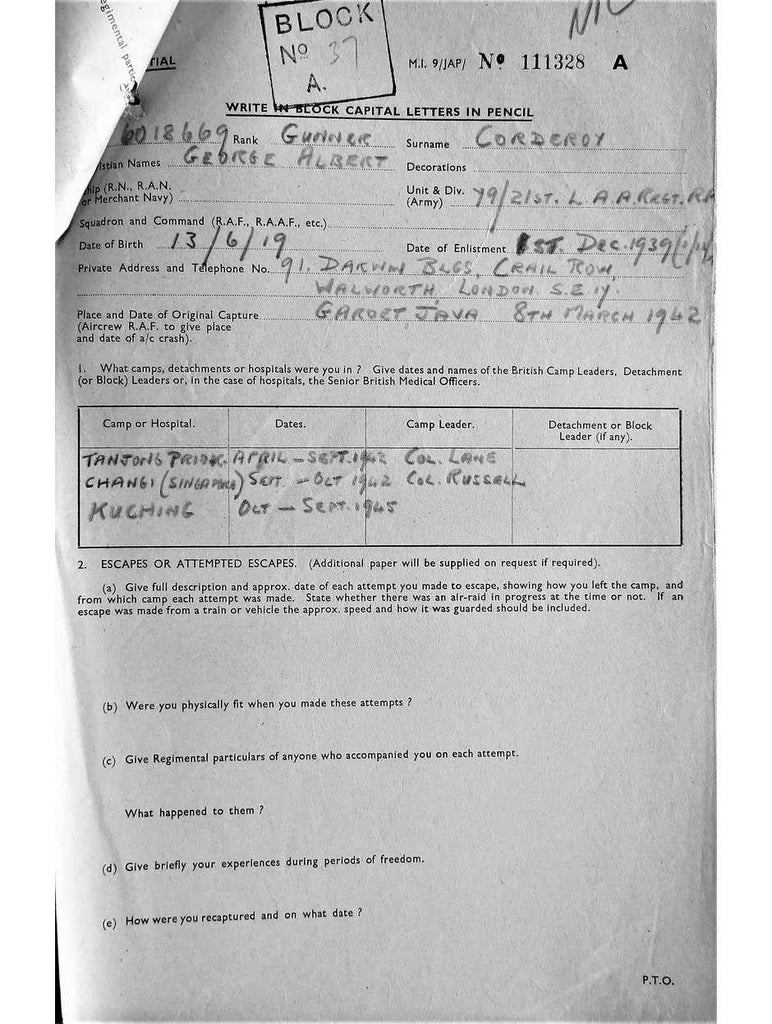 Regimental partic
TIAL
BLOCK
Nº 37
A.
M.I. 9/JAP/ Nº 111328 A
WRITE IN BLOCK CAPITAL LETTERS IN PENCIL
6018669 Rank GUNNER Surname CORDEROY
istian Names GEORGE ALBERT Decorations
hip (R.N., R.A.N. or Merchant Navy) Unit & Div. (Army) 79/21ST. L A A. REGT. RA
Squadron and Command (R.A.F., R.A.A.F., etc.)
Date of Birth 13/6/19 Date of Enlistment 1ST DEC. 1939
Private Address and Telephone No. 91. DARWIN BLGS, CRAIL ROW,
WALWORTH LONDON S.E 17.
Place and Date of Original Capture GAROET JAVA 8TH MARCH 1942
(Aircrew R.A.F. to give place
and date of a/c crash).
1. What camps, detachments or hospitals were you in ? Give dates and names of the British Camp Leaders, Detachment
(or Block) Leaders or, in the case of hospitals, the Senior British Medical Officers.
Camp or Hospital. Dates. Camp Leader. Detachment or Block Leader (if any).
TANJONG PRIOK. APRIL – SEPT. 1942 COL. LANE
CHANGI (SINGAPORE) SEPT. – OCT 1942 COL. RUSSELL
KUCHING OCT – SEPT. 1945
2. ESCAPES OR ATTEMPTED ESCAPES. (Additional paper will be supplied on request if required).
(a) Give full description and approx. date of each attempt you made to escape, showing how you left the camp, and
from which camp each attempt was made. State whether there was an air-raid in progress at the time or not. If an
escape was made from a train or vehicle the approx. speed and how it was guarded should be included.
(b) Were you physically fit when you made these attempts ?
(c) Give Regimental particulars of anyone who accompanied you on each attempt.
What happened to them ?
(d) Give briefly your experiences during periods of freedom.
(e) How were you recaptured and on what date ?
P.T.O.